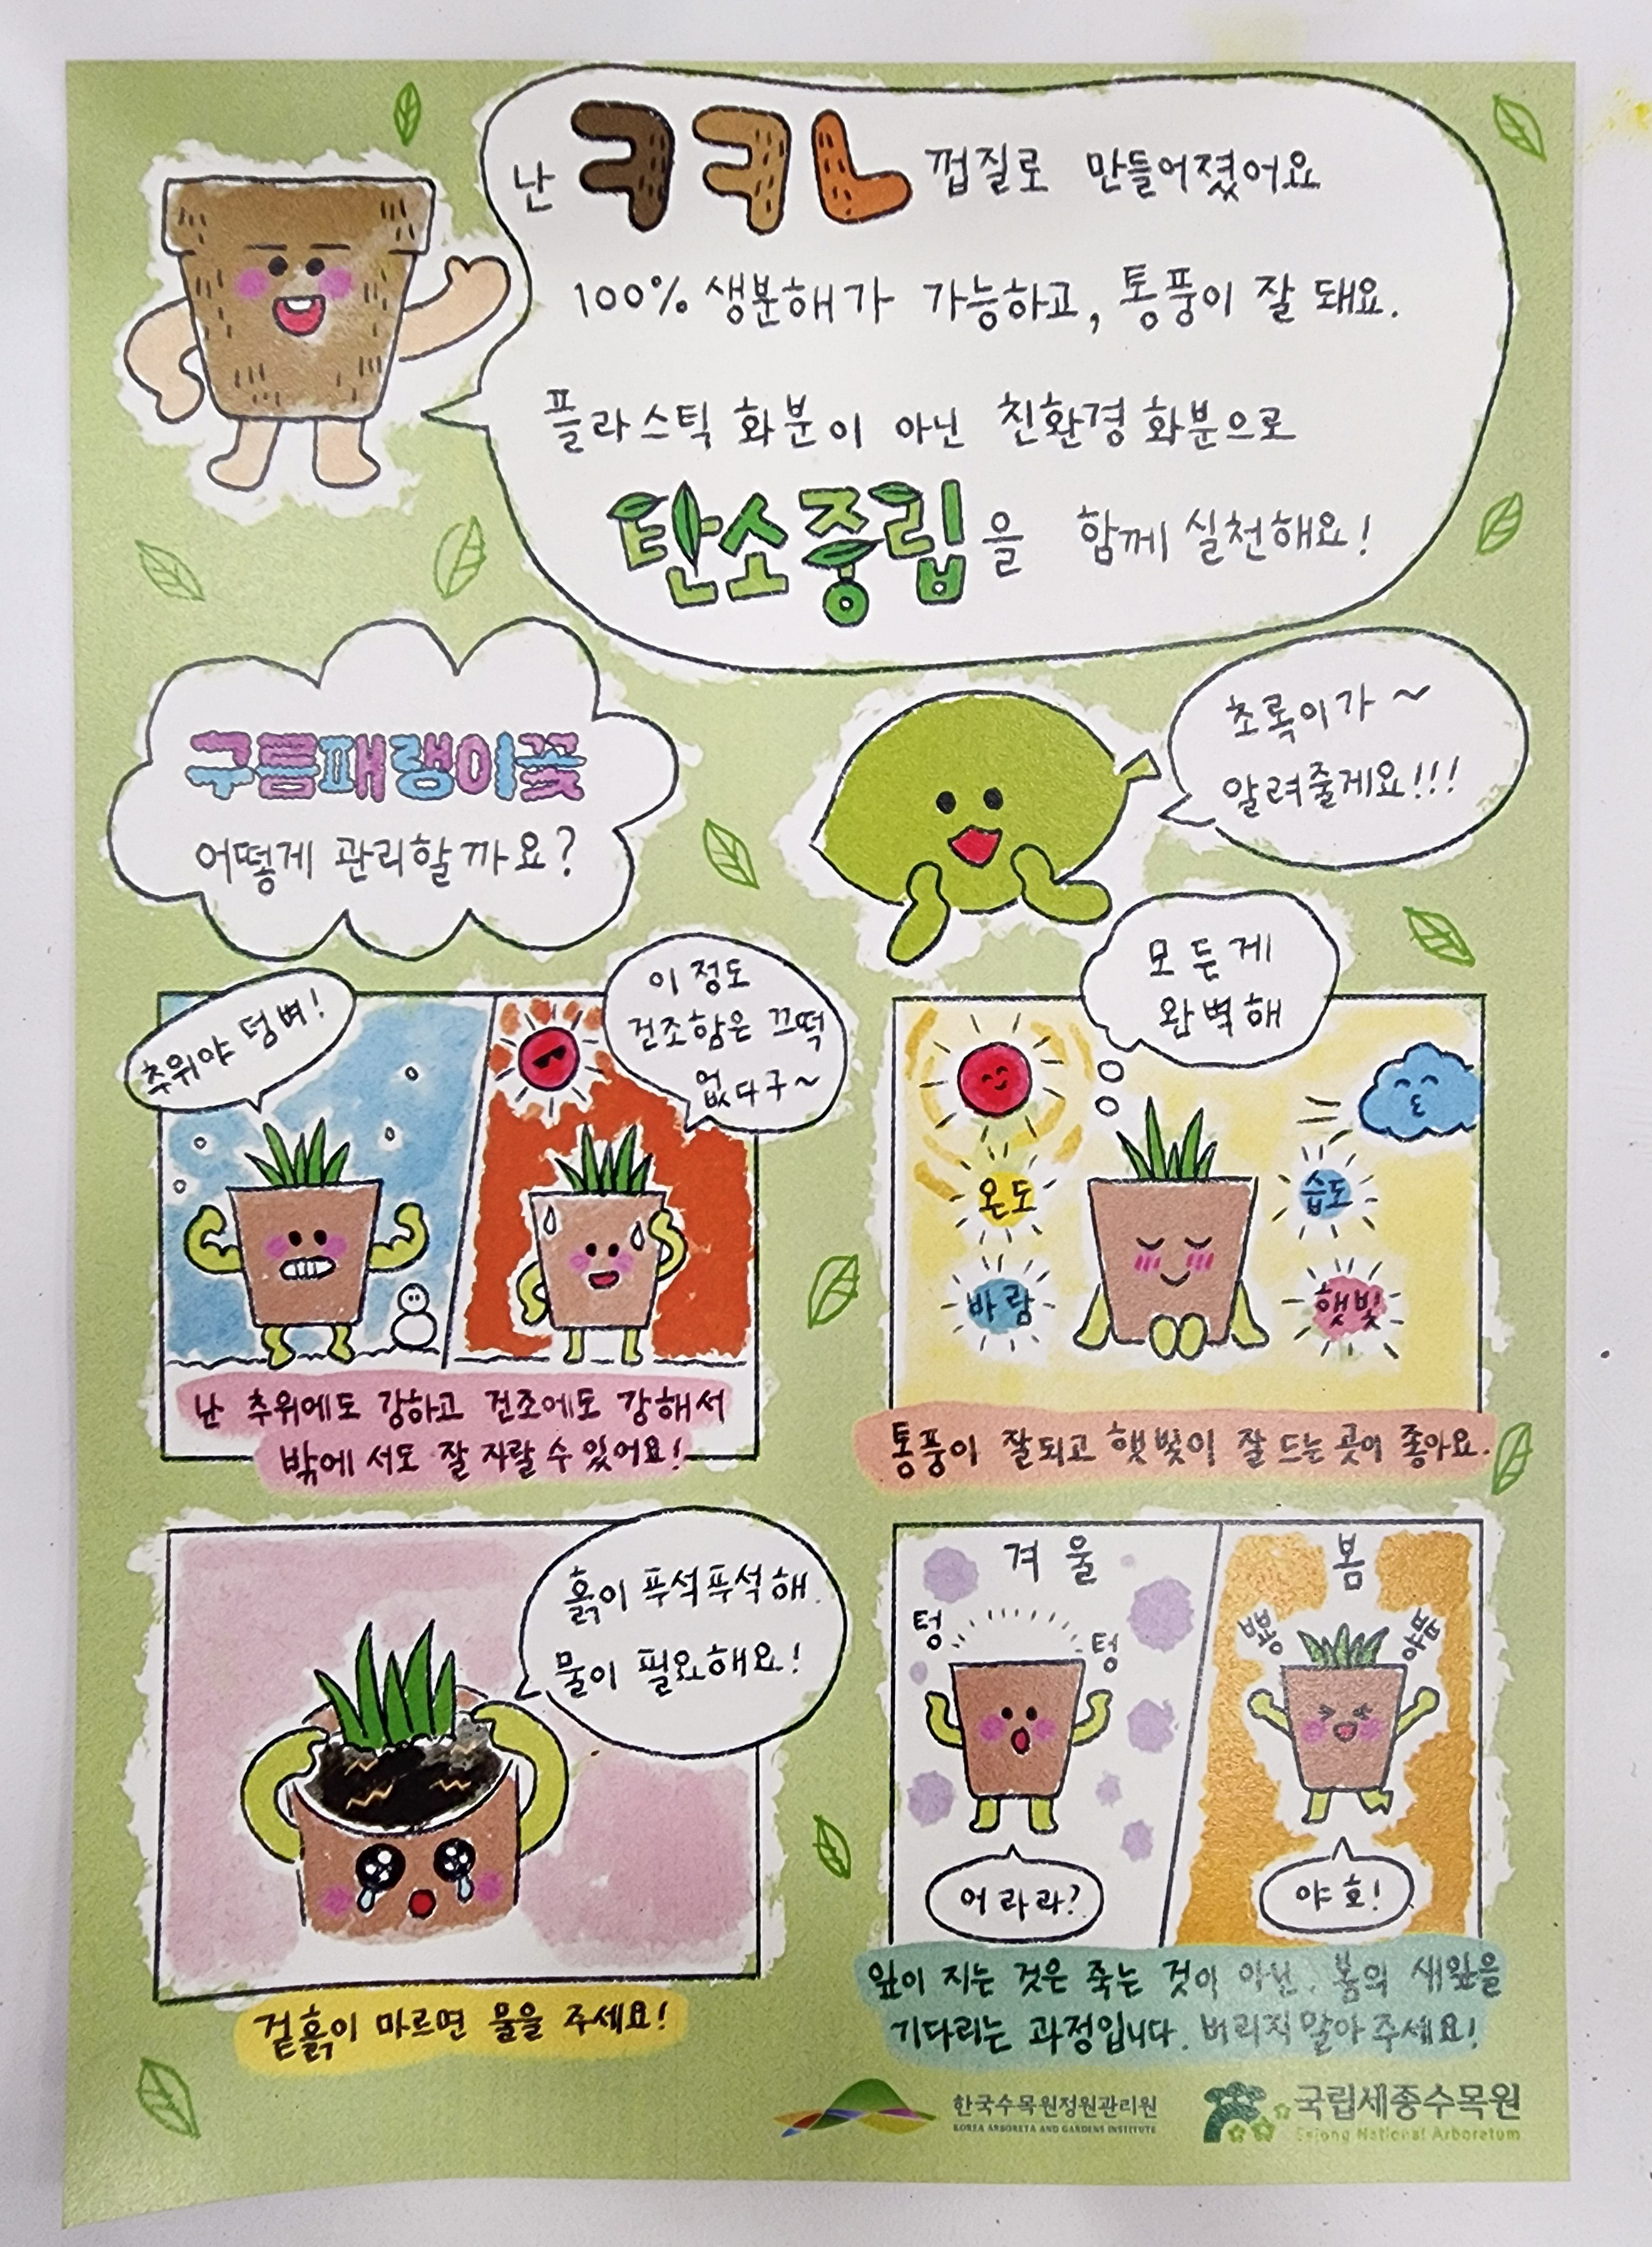 난 ㅋㅋㄴ 껍질로 만들어졌어요
100% 생분해가 가능하고, 통풍이 잘 돼요.
플라스틱 화분이 아닌 친환경 화분으로
탄소중립을 함께 실천해요!
구름패랭이꽃
어떻게 관리할까요?
초록이가~
알려줄게요!!!
추위야 덤벼!
이 정도
건조함은 끄떡
없다구~
난 추위에도 강하고 건조에도 강해서
밖에서도 잘 자랄 수 있어요!
모든게
완벽해
온도
습도
바람
햇빛
통풍이 잘되고 햇빛이 잘 드는 곳이 좋아요.
흙이 푸석푸석해.
물이 필요해요!
겉흙이 마르면 물을 주세요!
겨울
텅
텅
어라라?
봄
뿅
뿅
야호!
잎이 지는 것은 죽는 것이 아닌, 봄의 새잎을
기다리는 과정입니다. 버리지 말아 주세요!
한국수목원정원관리원
KOREA ARBORETA AND GARDENS INSTITUTE
국립세종수목원
Sejong National Arboretum